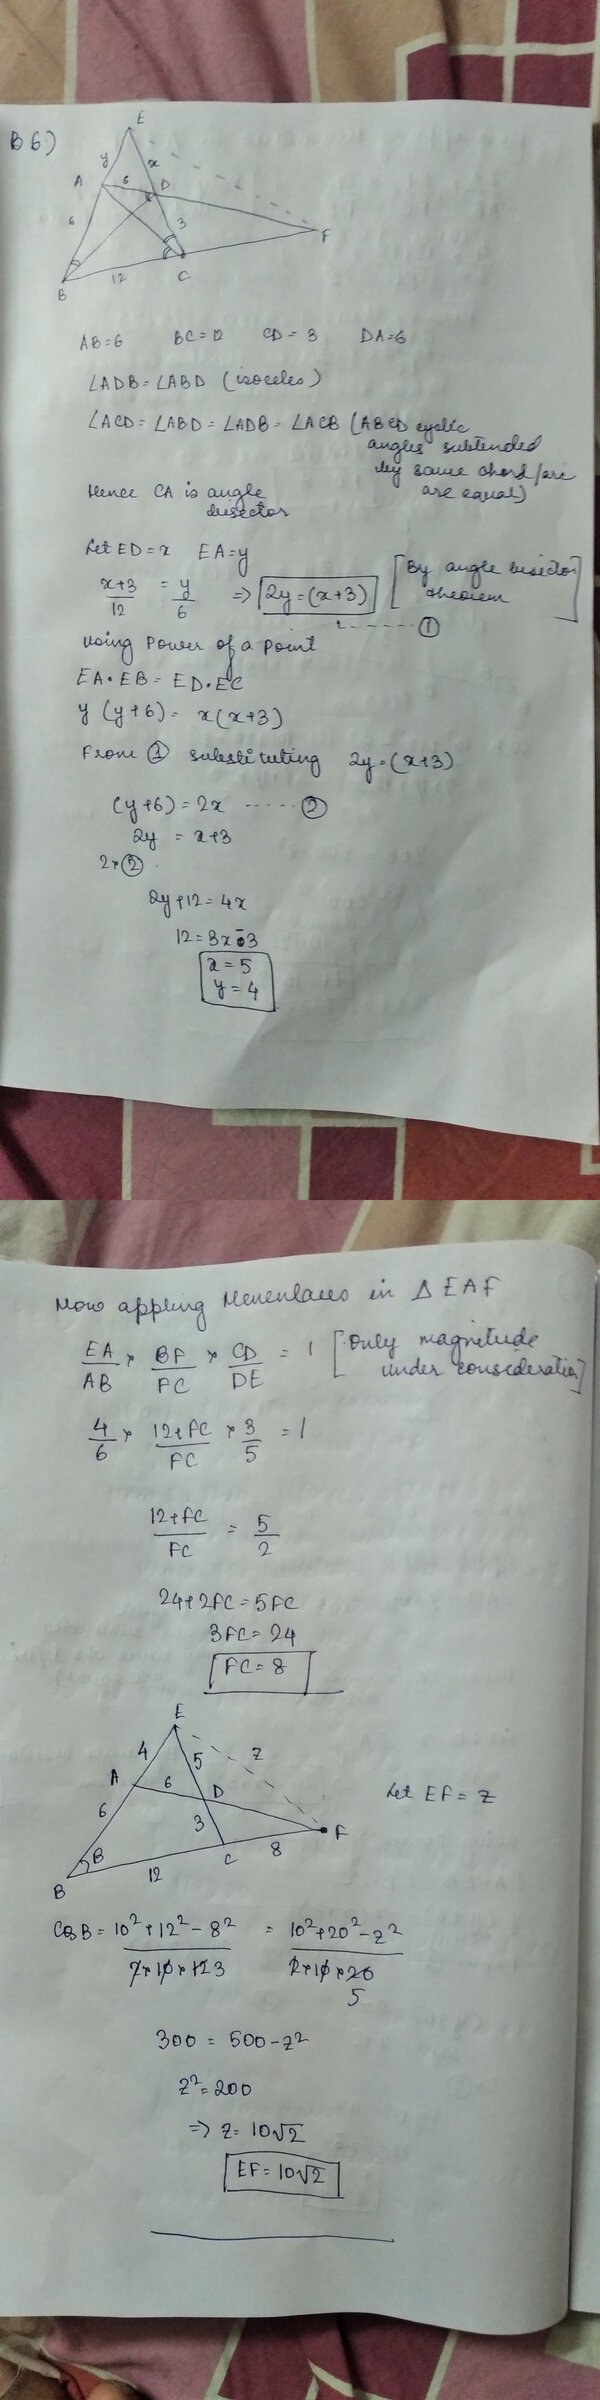 B6)
E
y x
A 6 D
6 3
F
12 C
B
AB=6 BC=12 CD=3 DA=6
∠ADB=∠ABD (isoceles)
∠ACD=∠ABD=∠ADB=∠ACB (ABCD cyclic
angles subtended
by same chord/arc
are equal)
Hence CA is angle
bisector
Let ED=x EA=y
x+3/12 = y/6 ⇒ 2y=(x+3) [By angle bisector
theorem]
------①
Using Power of a Point
EA•EB=ED•EC
y(y+6)=x(x+3)
From ① substituting 2y=(x+3)
(y+6)=2x ----- ②
2y = x+3
2×②
2y+12=4x
12=3x-3
x=5
y=4
Now appling Menenlaus in Δ EAF
EA/AB × BF/FC × CD/DE = 1 [Only magnitude
under consideration]
4/6 × 12+FC/FC × 3/5 = 1
12+FC/FC = 5/2
24+2FC=5FC
3FC=24
FC=8
E
4 5 z
A 6 D Let EF=z
6 3 F
B C 8
B 12
CosB = 10²+12²-8²/2×10×12 3 = 10²+20²-z²/2×10×20 5
300 = 500-z²
z²=200
⇒ z=10√2
EF=10√2